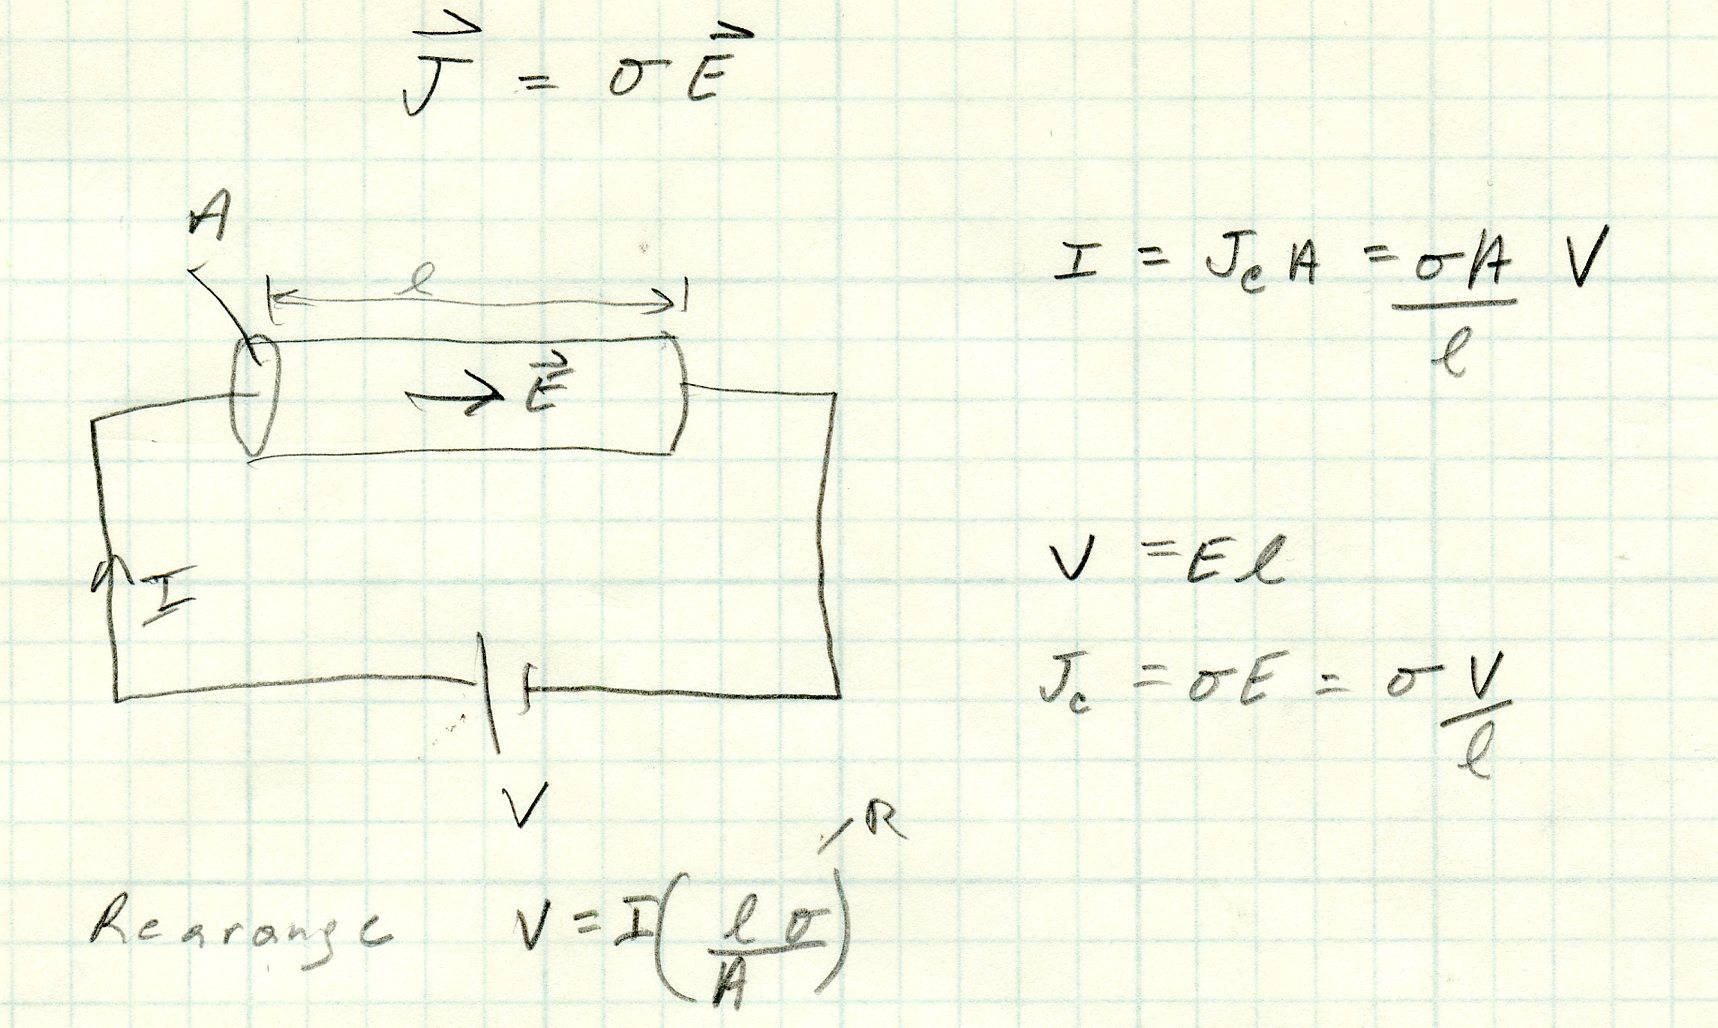 J⃗ = σ E⃗
A
l
I = J_c A = σA/l V
E⃗
V = E l
I
J_c = σE = σ V/l
V
R
Rearange V = I(l σ/A)